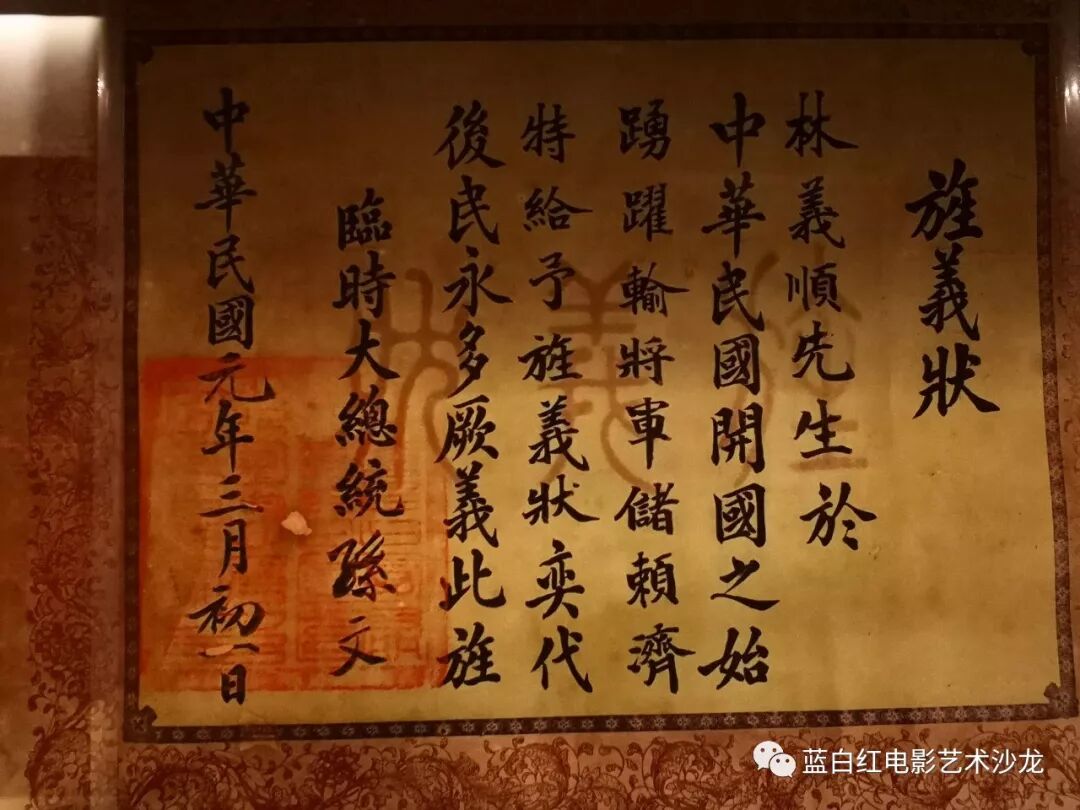 旌義狀
林義順先生於
中華民國開國之始
踴躍輸將軍儲賴濟
特給予旌義狀奕代
後民永多厥義此旌
臨時大總統孫文
中華民國元年三月初一日
旌義狀
蓝白红电影艺术沙龙